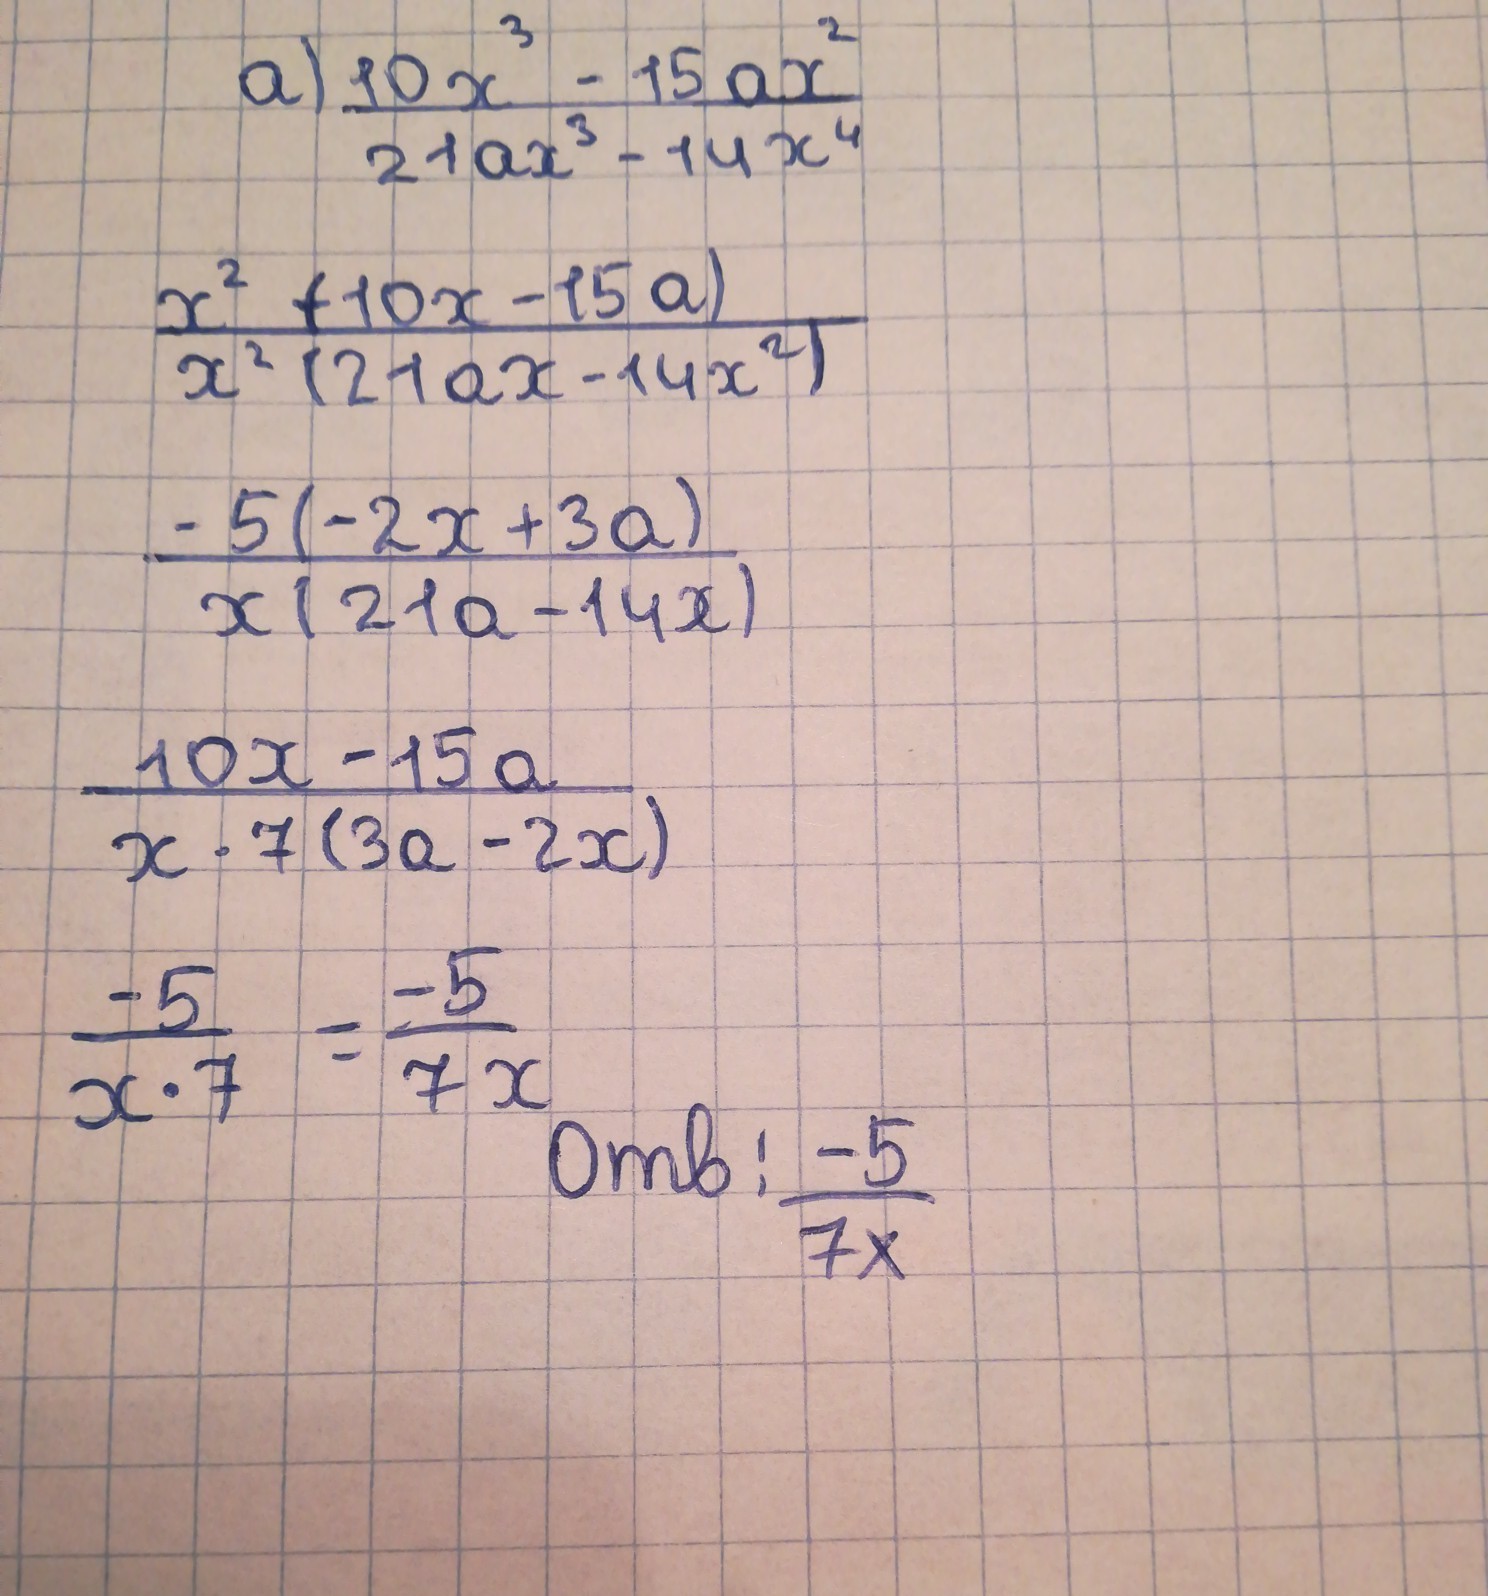 а) 10x³ - 15ax²
21ax³ - 14x⁴
x² (10x - 15a)
x² (21ax - 14x²)
-5(-2x + 3a)
x(21a - 14x)
10x - 15a
x · 7(3a - 2x)
-5 = -5
x · 7 7x
Отв: -5
7x